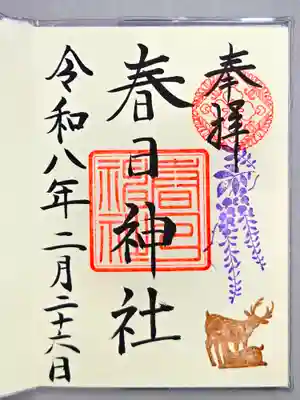 奉拝
春日神社
春日神社
令和八年二月二十六日